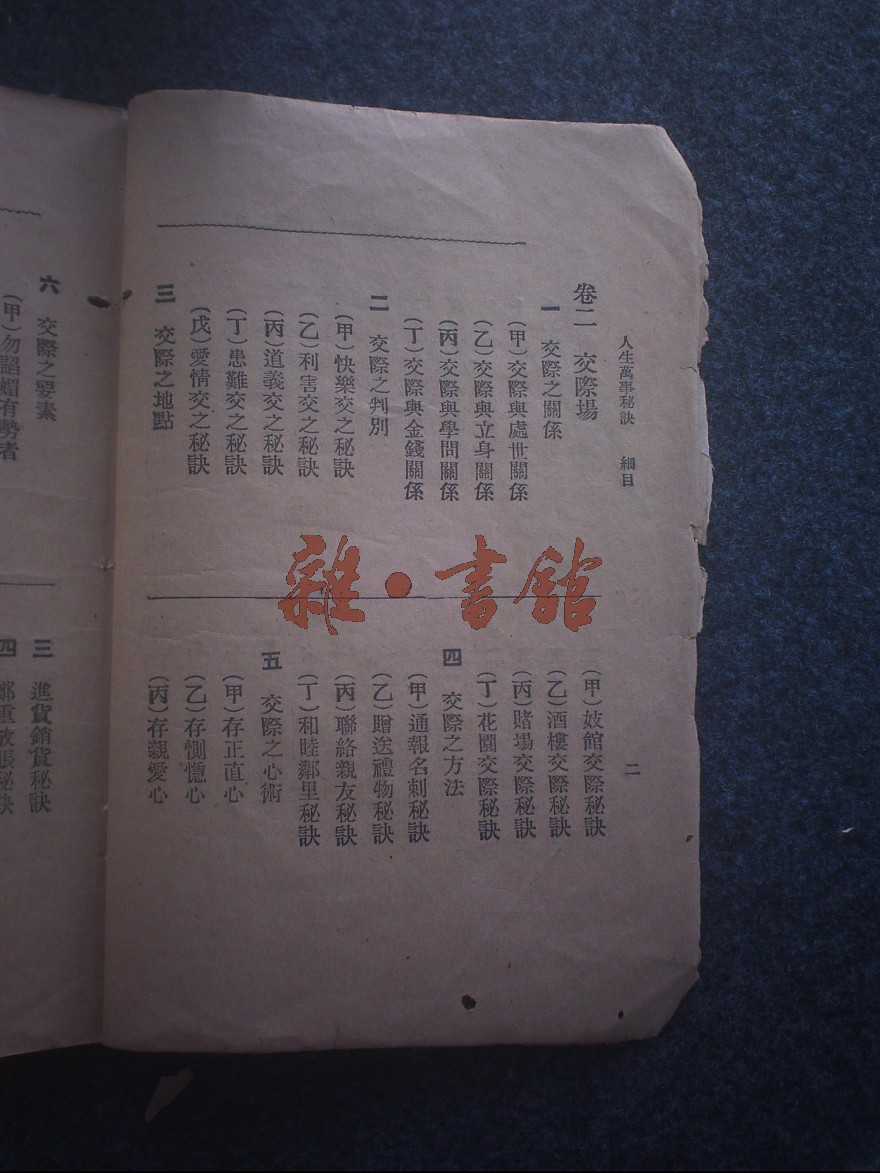 人生萬事秘訣　細目
二
卷二　交際場
一　交際之關係
（甲）交際與處世關係
（乙）交際與立身關係
（丙）交際與學問關係
（丁）交際與金錢關係
二　交際之判別
（甲）快樂交之秘訣
（乙）利害交之秘訣
（丙）道義交之秘訣
（丁）患難交之秘訣
（戊）愛情交之秘訣
三　交際之地點
（甲）妓館交際秘訣
（乙）酒樓交際秘訣
（丙）賭場交際秘訣
（丁）花園交際秘訣
四　交際之方法
（甲）通報名刺秘訣
（乙）贈送禮物秘訣
（丙）聯絡親友秘訣
（丁）和睦鄰里秘訣
五　交際之心術
（甲）存正直心
（乙）存惻憶心
（丙）存親愛心
六　交際之要素
（甲）勿諂媚有勢者
三　進貨銷貨秘訣
四
雜·書館